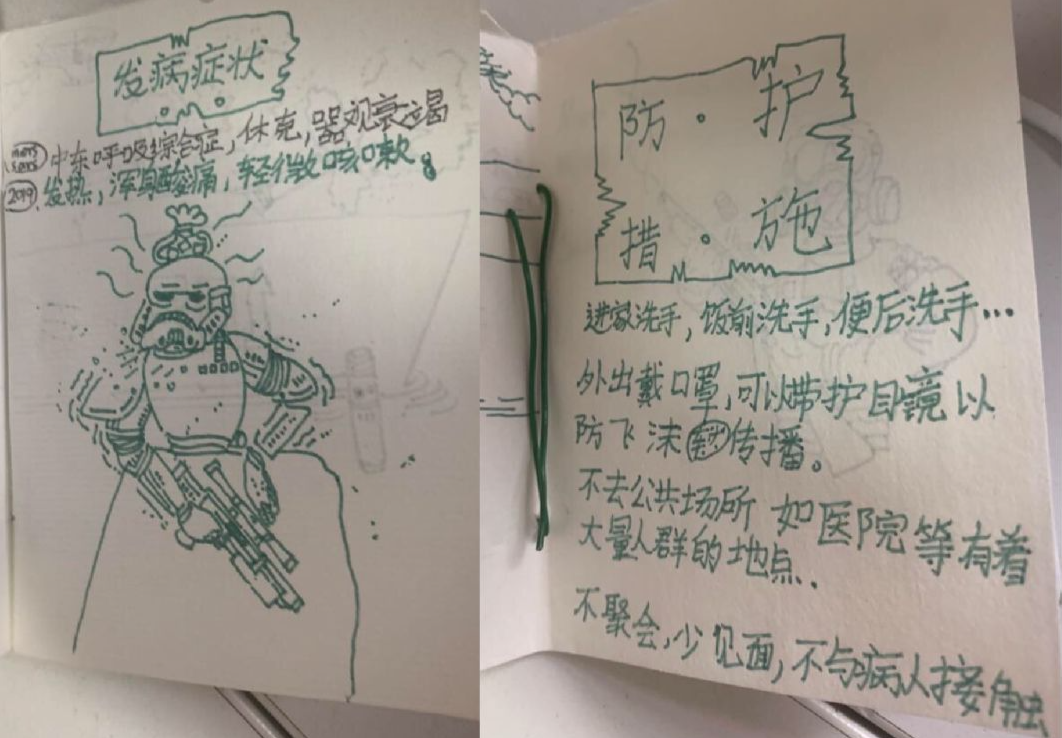 发病症状
中东呼吸综合症,休克,器观衰竭
2019 发热,浑身酸痛,轻微咳嗽。
防·护
措·施
进家洗手,饭前洗手,便后洗手…
外出戴口罩,可以带护目镜以
防飞沫传播。
不去公共场所 如医院等有着
大量人群的地点.
不聚会,少见面,不与病人接触